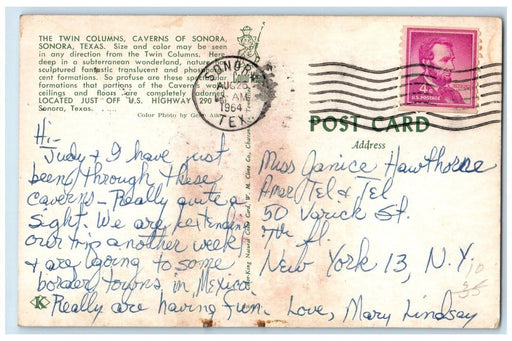 THE TWIN COLUMNS, CAVERNS OF SONORA,
SONORA, TEXAS. Size and color may be seen
in any direction from the Twin Columns. Here
deep in a subterranean wonderland, nature has
sculptured fantastic translucent and
cent formations. So profuse are these spectacular
formations that portions of the Caverns walls,
ceilings and floors are completely adorned.
LOCATED JUST OFF U.S. HIGHWAY 290
Sonora, Texas.
Color Photo by
SONORA
AUG 26
AM
1964
TEX.
4¢
U.S. POSTAGE
POST CARD
Address
Hi-
Judy & I have just
been through these
caverns - Really quite a
sight. We are extending
our trip another week
& are going to some
border towns in Mexico.
Really are having fun. Love, Mary Lindsay
Miss Janice Hawthorne
Amer Tel & Tel
50 Varick St.
7th fl.
New York 13, N.Y.
10
35
K